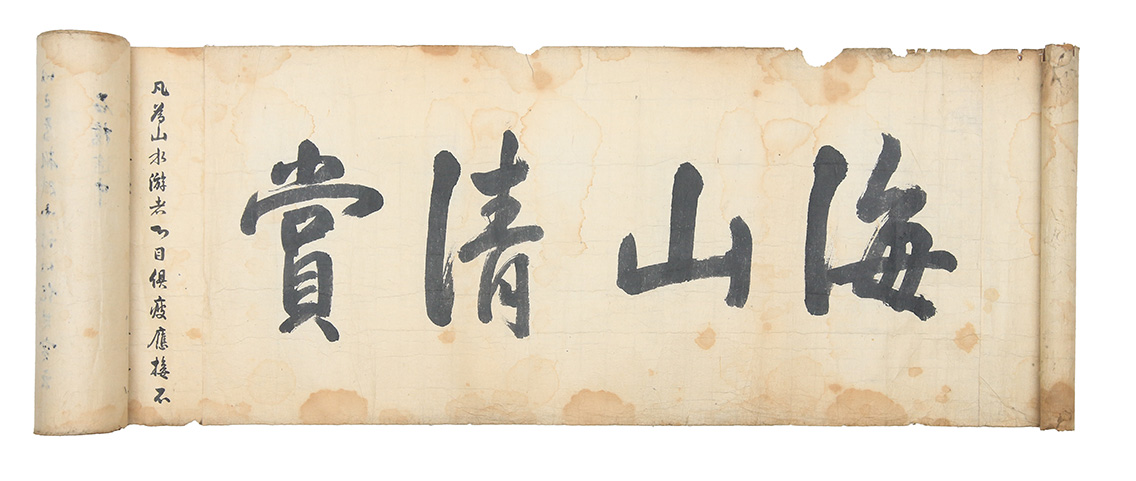 海山清賞
凡為山水游者心目俱疲應接不